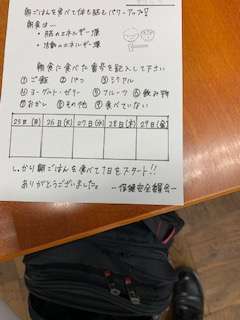 朝ごはんを食べて体も脳もパワーアップ!!
朝食は…
・脳のエネルギー源
・活動のエネルギー源
朝食に食べた番号を記入して下さい
①ご飯 ②パン ③シリアル
④ヨーグルト・ゼリー ⑤フルーツ ⑥飲み物
⑦おかし ⑧その他 ⑨食べていない
25日(月) 26日(火) 27日(水) 28日(木) 29日(金)
しっかり朝ごはんを食べて1日をスタート!!
ありがとうございました。 ー保健安全委員会ー